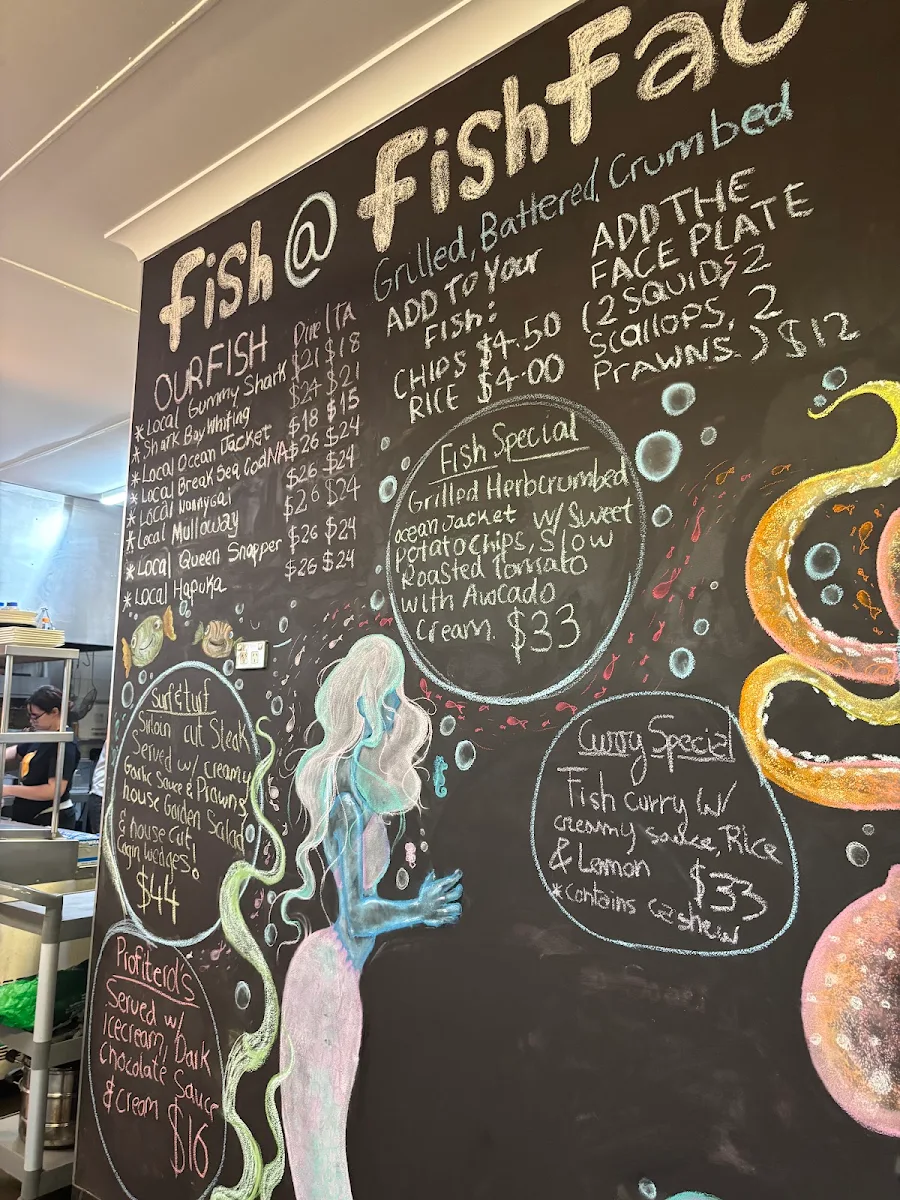 Fish @ FishFac
Grilled, Battered, Crumbed
OUR FISH Dine | TA
*Local Gummy Shark $21 $18
*Shark Bay Whiting $24 $21
*Local Ocean Jacket $18 $15
*Local Break Sea Cod NA $26 $24
*Local Nannygai $26 $24
*Local Mulloway $26 $24
*Local Queen Snapper $26 $24
*Local Hapuka $26 $24
ADD TO Your
FISH:
CHIPS $4.50
RICE $4.00
ADD THE
FACE PLATE
(2 SQUID, 2
Scallops, 2
Prawns.) $12
Fish Special
Grilled Herbcrumbed
ocean Jacket w/ Sweet
potato chips, Slow
Roasted Tomato
with Avocado
Cream. $33
Surf & turf
Sirloin cut Steak
Served w/ creamy
Garlic Sauce & Prawns
house Garden Salad
& house cut
Cajun wedges!
$44
Curry Special
Fish curry w/
creamy sauce, Rice
& Lemon $33
*contains cashew
Profiterol's
Served w/
icecream, Dark
chocolate Sauce
& cream $16